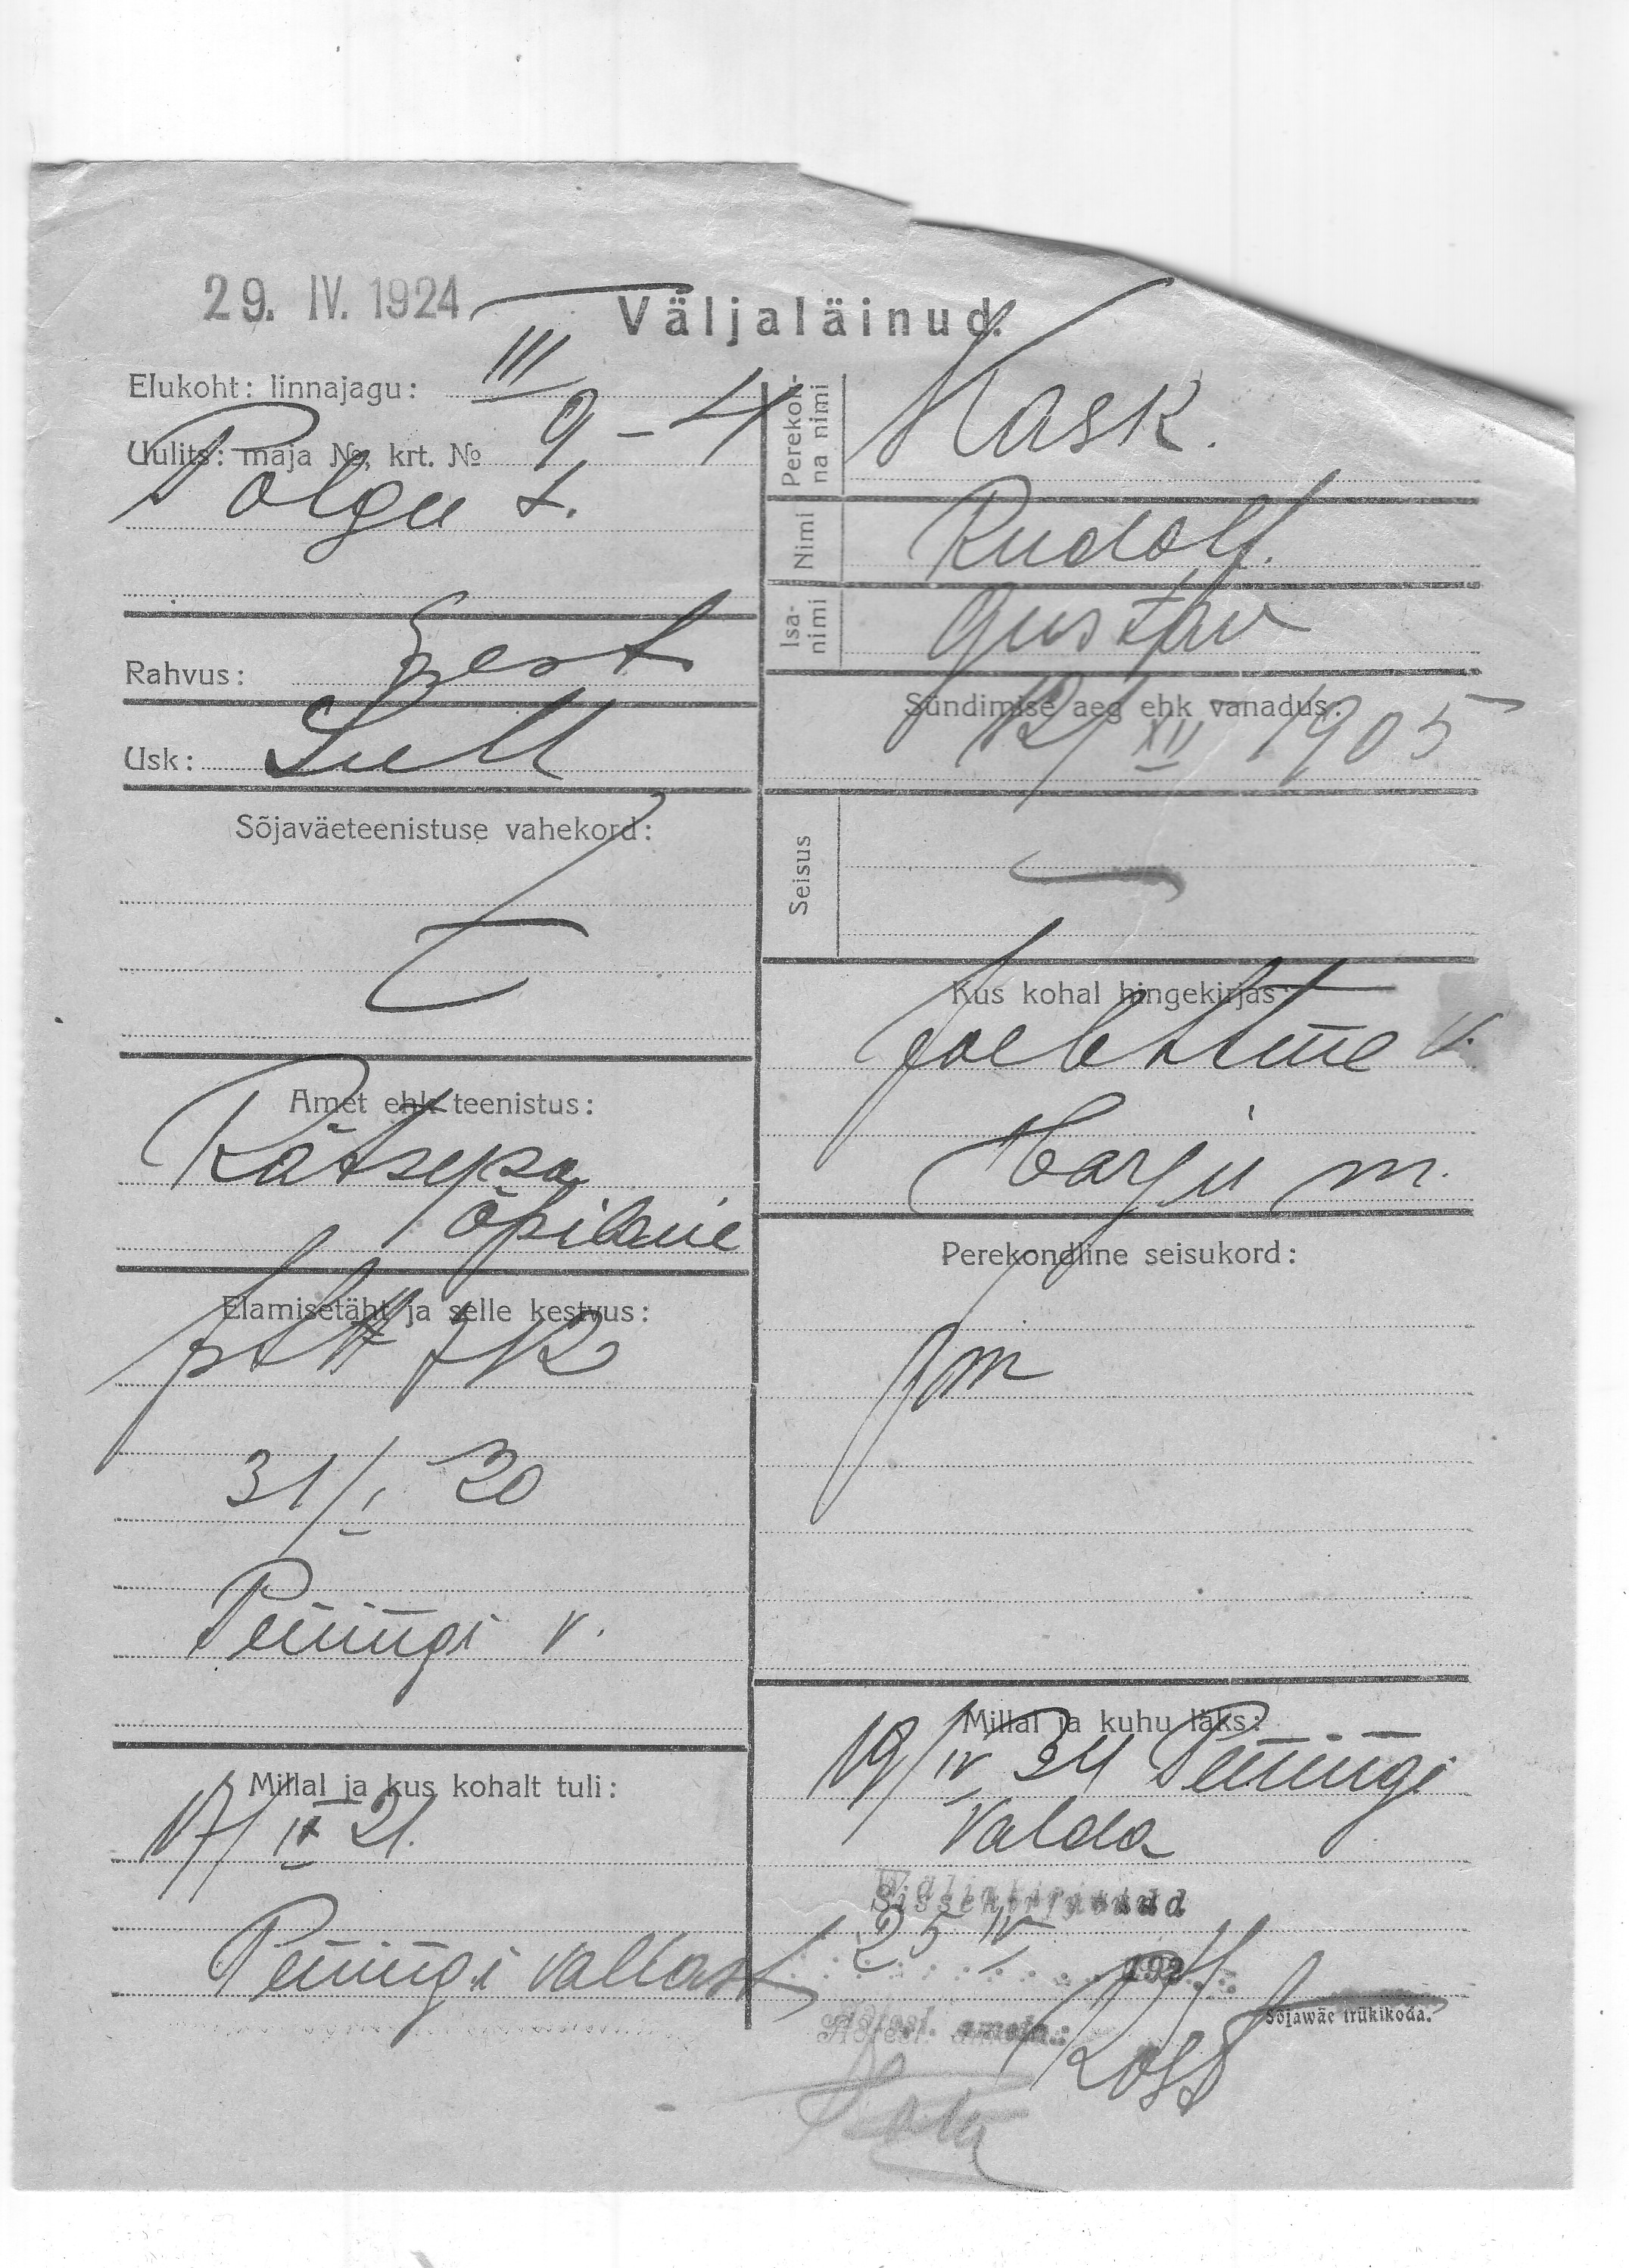 29. IV. 1924
Väljaläinud.
Elukoht: linnajagu: III
Uulits: maja №, krt. № 9 – 4
Põlgu t.
Rahvus: Eest
Usk: Lutt
Sõjaväeteenistuse vahekord:
Amet ehk teenistus:
Rätsepa
õpilane
Elamisetäht ja selle kestvus:
31/I 20
Peningi v.
Millal ja kus kohalt tuli:
17/IX 21.
Peningi vallast
Perekonna nimi Kask.
Nimi Rudolf.
Isanimi Gustav
Sündimise aeg ehk vanadus:
12/XII 1905
Seisus
Kus kohal hingekirjas
Joelehtme v.
Harju m.
Perekondline seisukord:
pm
Millal ja kuhu läks:
19/IV 24 Peningi
valda
25 IV
192
Adresl. ametn.:
Sõjawäe trükikoda.